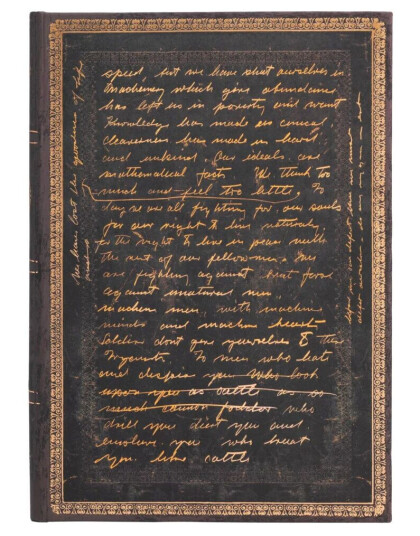 We have lost the of
speed, but we have shut ourselves in
Machinery which gives abundance
has left us in poverty and want
Knowledge has made us cynical
cleverness has made us hard
and unkind. Our ideals are
mathematical facts. We think too
much and feel too little. To
day we are all fighting for our souls
for our right to live naturally
for the right to live in peace with
the rest of our fellowmen. Men
are fighting against brut force
against unnatural men
machine men, with machine
minds and machine hearts
Soldiers dont give yourselves to the
Tyrants. To men who beat
and despise you who look
upon you as cattle as
cannon fodder who
drill you diet you and
enslave you who treat
you like cattle